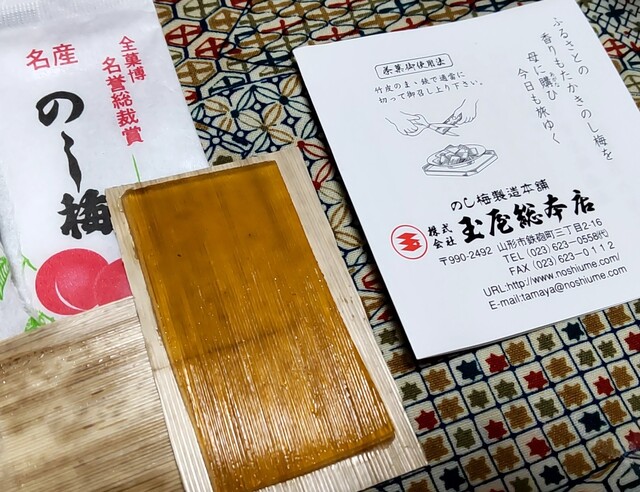 名産
全菓博
名誉総裁賞
のし梅
ふるさとの
香りもたかきのし梅を
母に購ひ
今日も旅ゆく
茶菓御使用法
竹皮のまゝ鋏で適当に
切って御召し上り下さい。
のし梅製造本舗
株式会社 玉屋総本店
〒990-2492 山形市鉄砲町三丁目2-16
TEL (023) 623−0558代
FAX (023) 623−0112
URL:http://www.noshiume.com/
E-mail:tamaya@noshiume.com